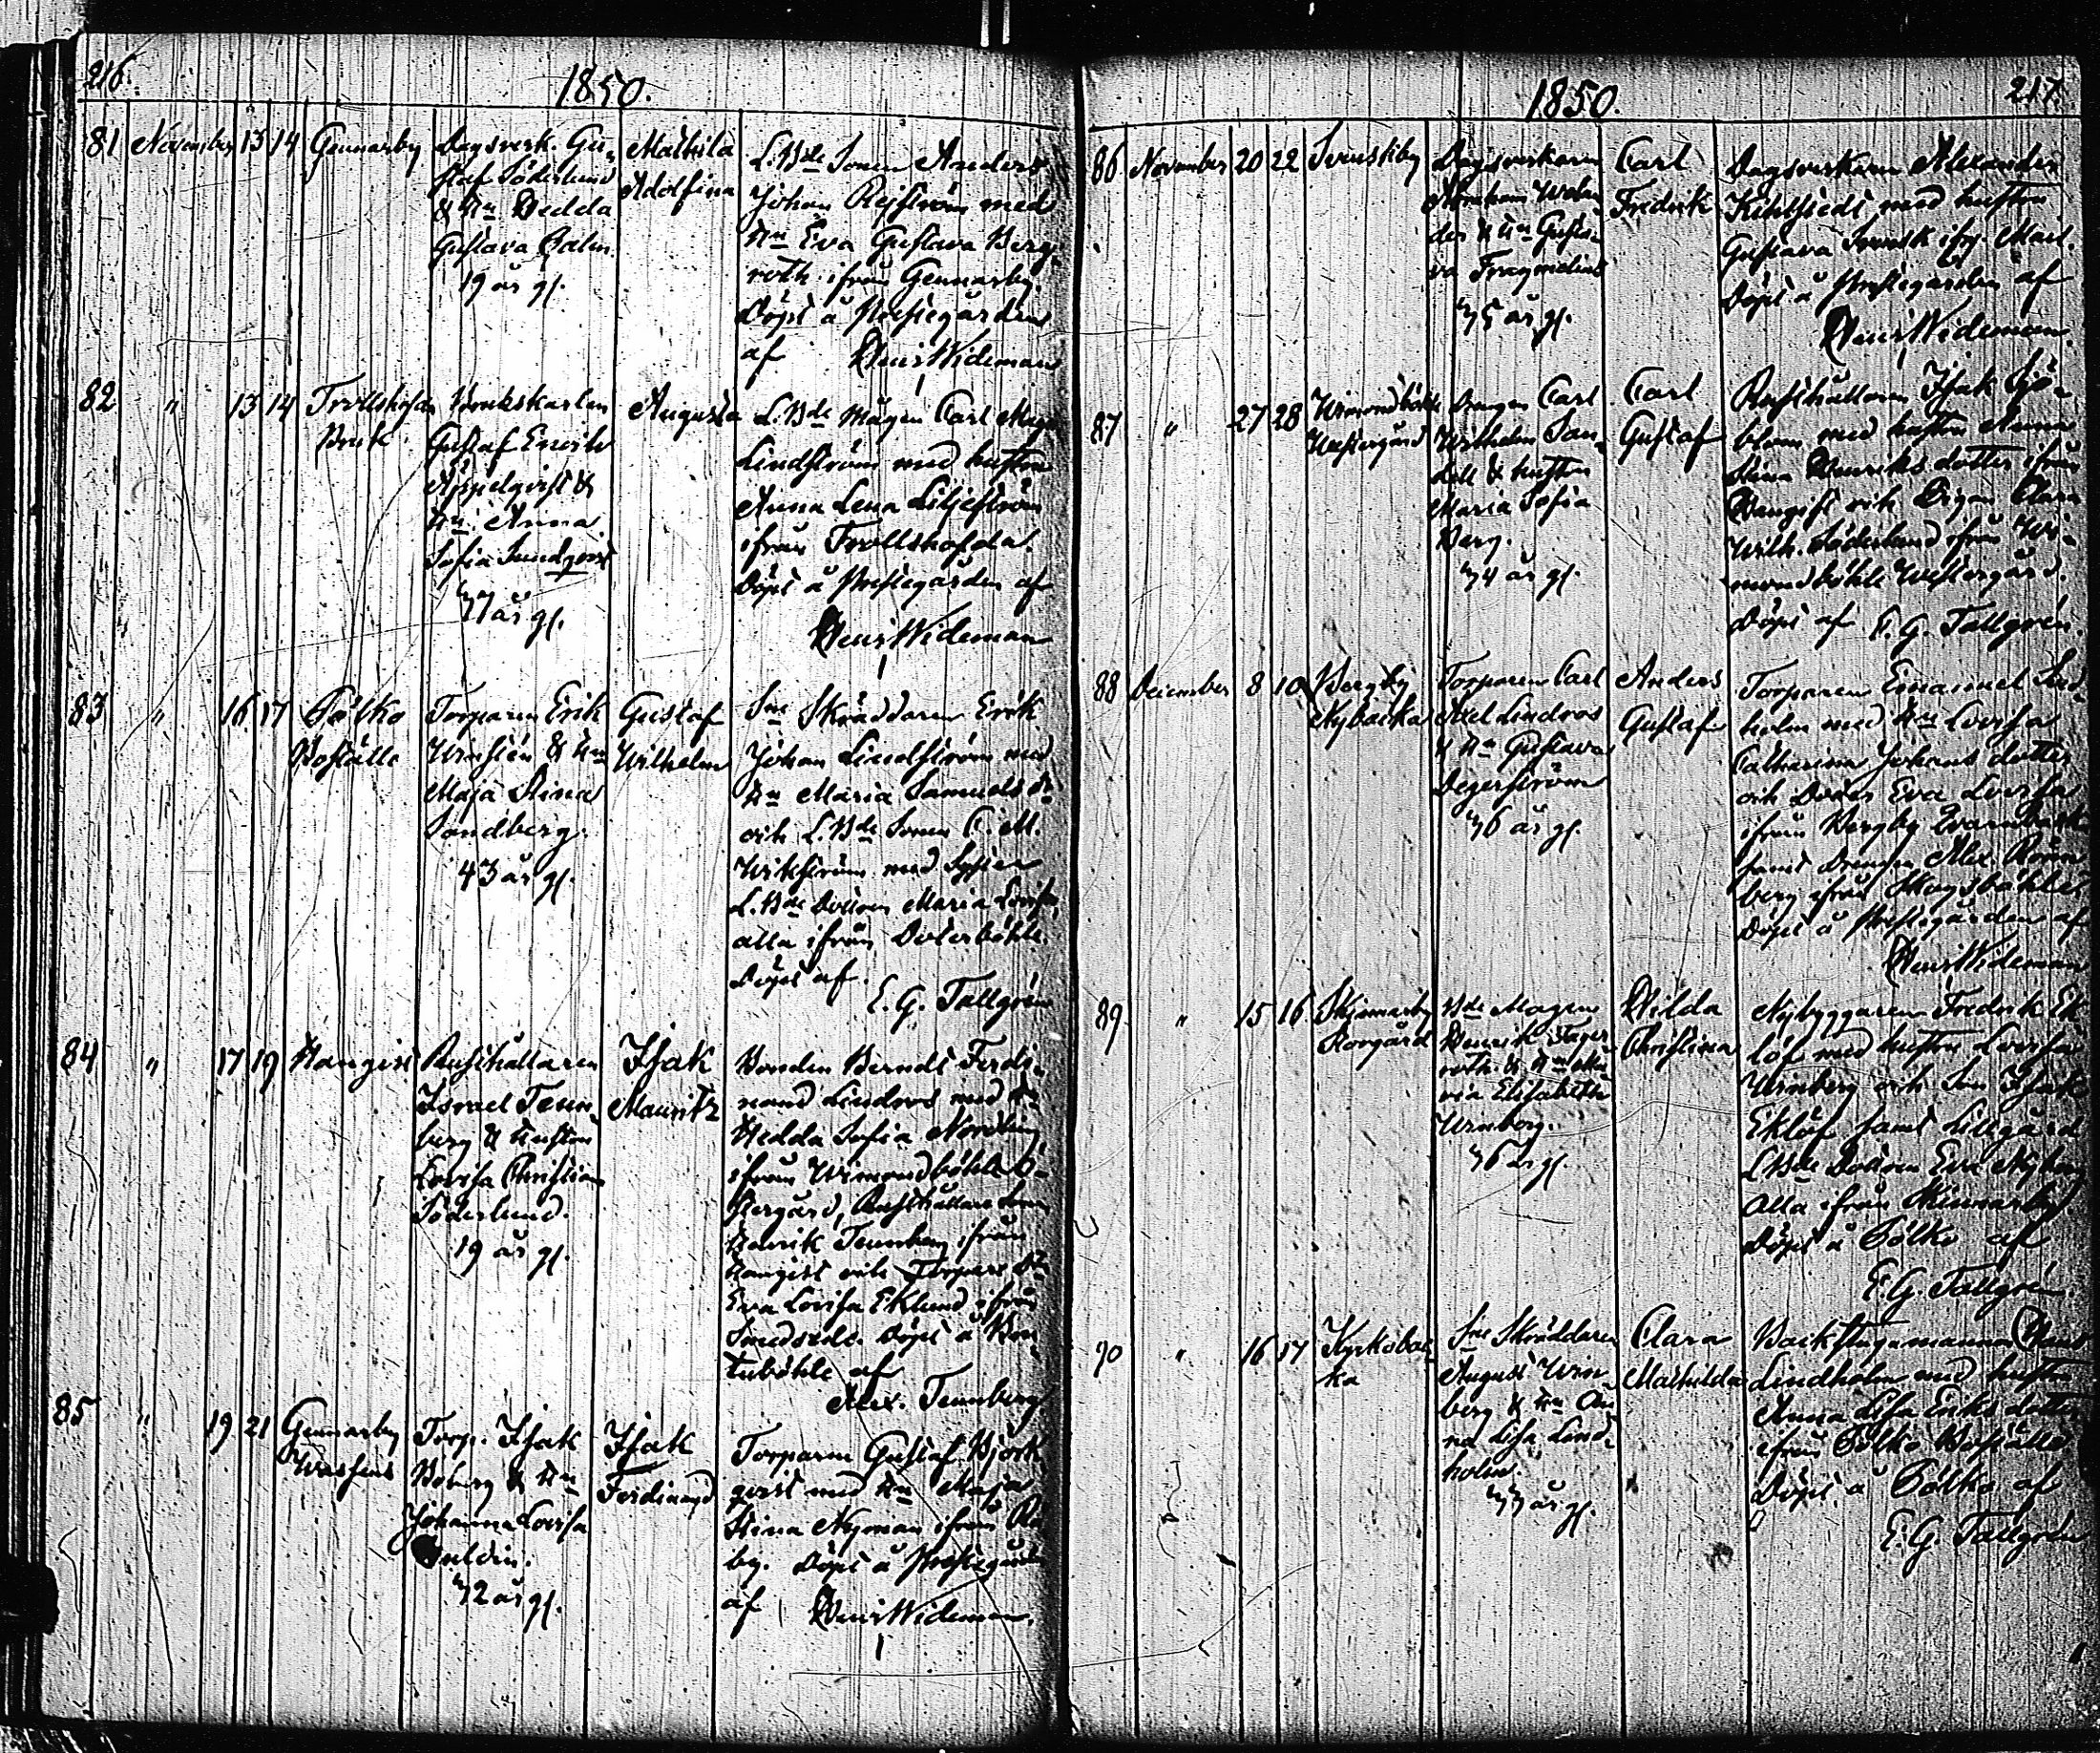 216.
1850.
81 November 13 14 Gennarby Dagsverk. Gu-
staf Söderlund
& Hu Hedda
Gustava Palin.
19 år gl.
Mathila
Adolfina
L. Bde Sonen Anders
Johan Rejström med
Hu Eva Gustava Berg-
roth ifrån Gennarby.
Döpt å Prestegården
af Henr Wideman
82 " 13 14 Trollshofda
Bruk
Brukskarlen
Gustaf Enrik
Äppelqvist &
Hu Anna
Sofia Sundqvist
27 år gl.
Augusta
L. Bde Mågen Carl Magn
Lindström med hustru
Anna Lena Liljeström
ifrån Trollshofda.
Döpt å Prestegården af
Henr Wideman
83 " 16 17 Solko
Boställe
Torparen Erik
& Hu
Maja Stina
Sandberg.
43 år gl.
Gustaf
Wilhelm
Sne Skräddaren Erik
Johan Lindström med
Hu Maria Samuels dr
och L. Bde Sonen C. M.
Wikström med Syster
L. Bde Dottren Maria Lovisa
alla ifrån Dotterböhle.
Döpt af
E. G. Tallgrén
84 " 17 19 Hangist Rusthållaren
Israel Tenn-
berg & hustru
Lovisa Christina
Söderlund.
19 år gl.
Isak
Mauritz
Bonden Berndt Ferdi-
nand Lindros med Hu
Hedda Sofia Nordling
ifrån Wimondböhle Ö-
stergård, Rusthållare Sonen
Henrik Tennberg ifrån
Hangist och Torpare Dr
Eva Lovisa Eklund ifrån
Döpt å
af
Alex. Tennberg
85 " 19 21 Gennarby
Torp. Isak
Boberg & Hu
Johanna Lovisa
42 år gl.
Isak
Ferdinand
Torparen Gustaf Björk
qvist med Hu Maja
Stina Nyman ifrån
by. Döpt å Prestegården
af Henr Wideman.
1850.
217.
86 November 20 22 Svenskby Dagsverkaren
Abraham Welan
der & Hu Gusta-
va
45 år gl.
Carl
Fredrik
Dagsverkaren Alexander
med hustru
Gustava
Döpt å Prestegården af
Henr Wideman.
87 " 27 28 Wimondböhle
Westergård
Drengen Carl
Wilhelm San-
dell & hustru
Maria Sofia
Berg.
44 år gl.
Carl
Gustaf
Rusthållaren Isak Sjö-
blom med hustru Anna
Stina Henriks dotter ifrån
Hangist och Pigan Clara
Wilh. Söderlund ifrån Wi-
mondböhle Westergård.
Döpt af E. G. Tallgrén.
88 December 8 10 Bergby
Nybacka
Torparen Carl
Axel Lindros
& Hu Gustava
Degerström
46 år gl.
Anders
Gustaf
Torparen Emanuel
holm med Hu Lovisa
Catharina Johans dotter
och Dotter Eva Lovisa
ifrån Bergby
samt Drengen Alex.
berg ifrån Skogsböhle
Döpt å Prestegården af
Henr Wideman
89 " 15 16 Skinnarby
Norgård
Bde Mågen
Henrik Fager
roth & Hu Ma-
ria Elisabeth
46 år gl.
Hilda
Christina
Nybyggaren Fredrik Ek
löf med hustru Lovisa
och Son Isak
Eklöf samt Lillgård
L Bde Dottren Eva Nyman
Alla ifrån Skinnarby
Döpt å Solko af
E. G. Tallgrén
90 " 16 17 Kyrkobac-
ka
Sne Skräddaren
August Win-
berg & Hu An-
na Lisa Lind-
holm.
33 år gl.
Clara
Mathilda
Backstugumannen
Lindholm med hustru
Anna Lisa Eriks dotter
ifrån Solko Boställe
Döpt å Solko af
E. G. Tallgrén